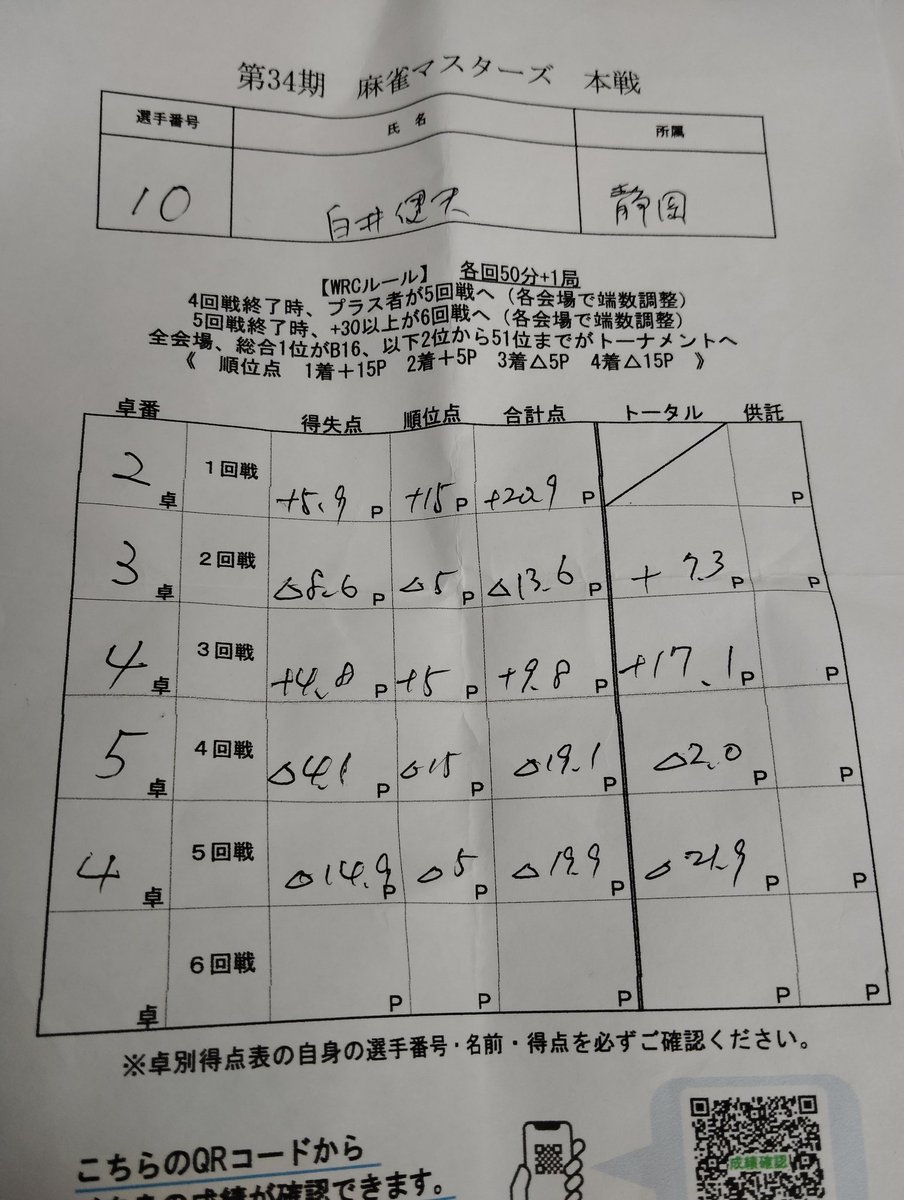 第34期 麻雀マスターズ 本戦
選手番号 氏名 所属
10 白井健夫 静岡
【WRCルール】 各回50分+1局
4回戦終了時、プラス者が5回戦へ（各会場で端数調整）
5回戦終了時、+30以上が6回戦へ（各会場で端数調整）
全会場、総合1位がB16、以下2位から51位までがトーナメントへ
《 順位点 1着＋15P 2着＋5P 3着△5P 4着△15P 》
卓番 得失点 順位点 合計点 トータル 供託
2卓 1回戦 +5.9P +15P +20.9P P
3卓 2回戦 △8.6P △5P △13.6P +7.3P P
4卓 3回戦 +4.8P +5P +9.8P +17.1P P
5卓 4回戦 △4.1P △15P △19.1P △2.0P P
4卓 5回戦 △14.9P △5P △19.9P △21.9P P
卓 6回戦 P P P P P
※卓別得点表の自身の選手番号・名前・得点を必ずご確認ください。
こちらのQRコードから
成績確認
の成績が確認できます。